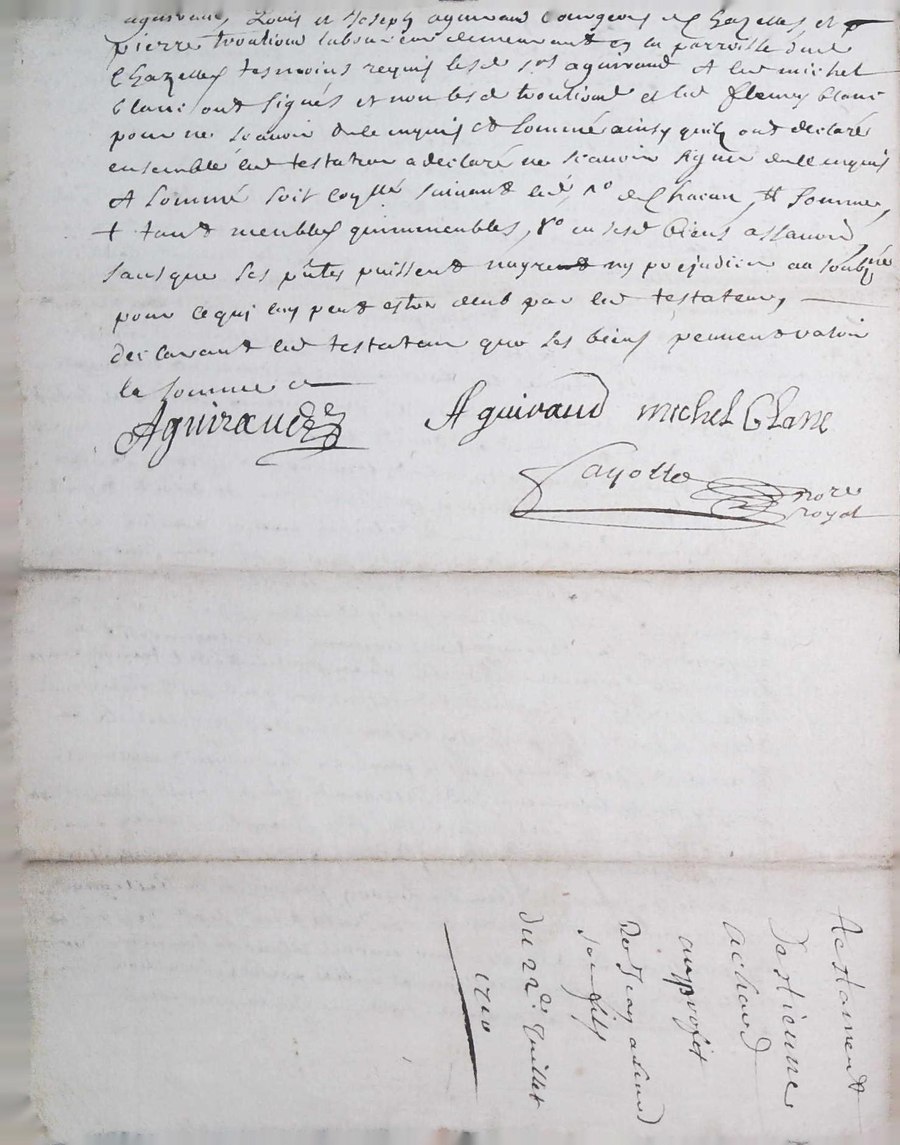 aguiraud, Louis et Joseph aguiraud bourgeois de Chazelles, et
pierre troutioud laboureur demeurant en la parroisse dud
Chazelles tesmoins requis lesd srs aguiraud et led michel
blanc ont signés et non lesd troutioud et led fleury blanc
pour ne scavoir de ce enquis et sommé ainsy quilz ont declaré
ensemble led testateur a declaré ne scavoir signer de ce enquis
et sommé soit suivant led, de chacun, # somme,
+ tant meubles quimmeubles, en sesd biens assavoir
sans que les puissent nuyre ny prejudicier au soubzné
pour ce qui luy peut estre deub par led testateur,
declarant led testateur que ses biens peuvent valoir
la somme de
Aguiraud Aguiraud michel blanc
Layotte nore
royal
Testament
Destienne
achard
au proffit
de Jean achard
son filz
du 22e Juillet
1710